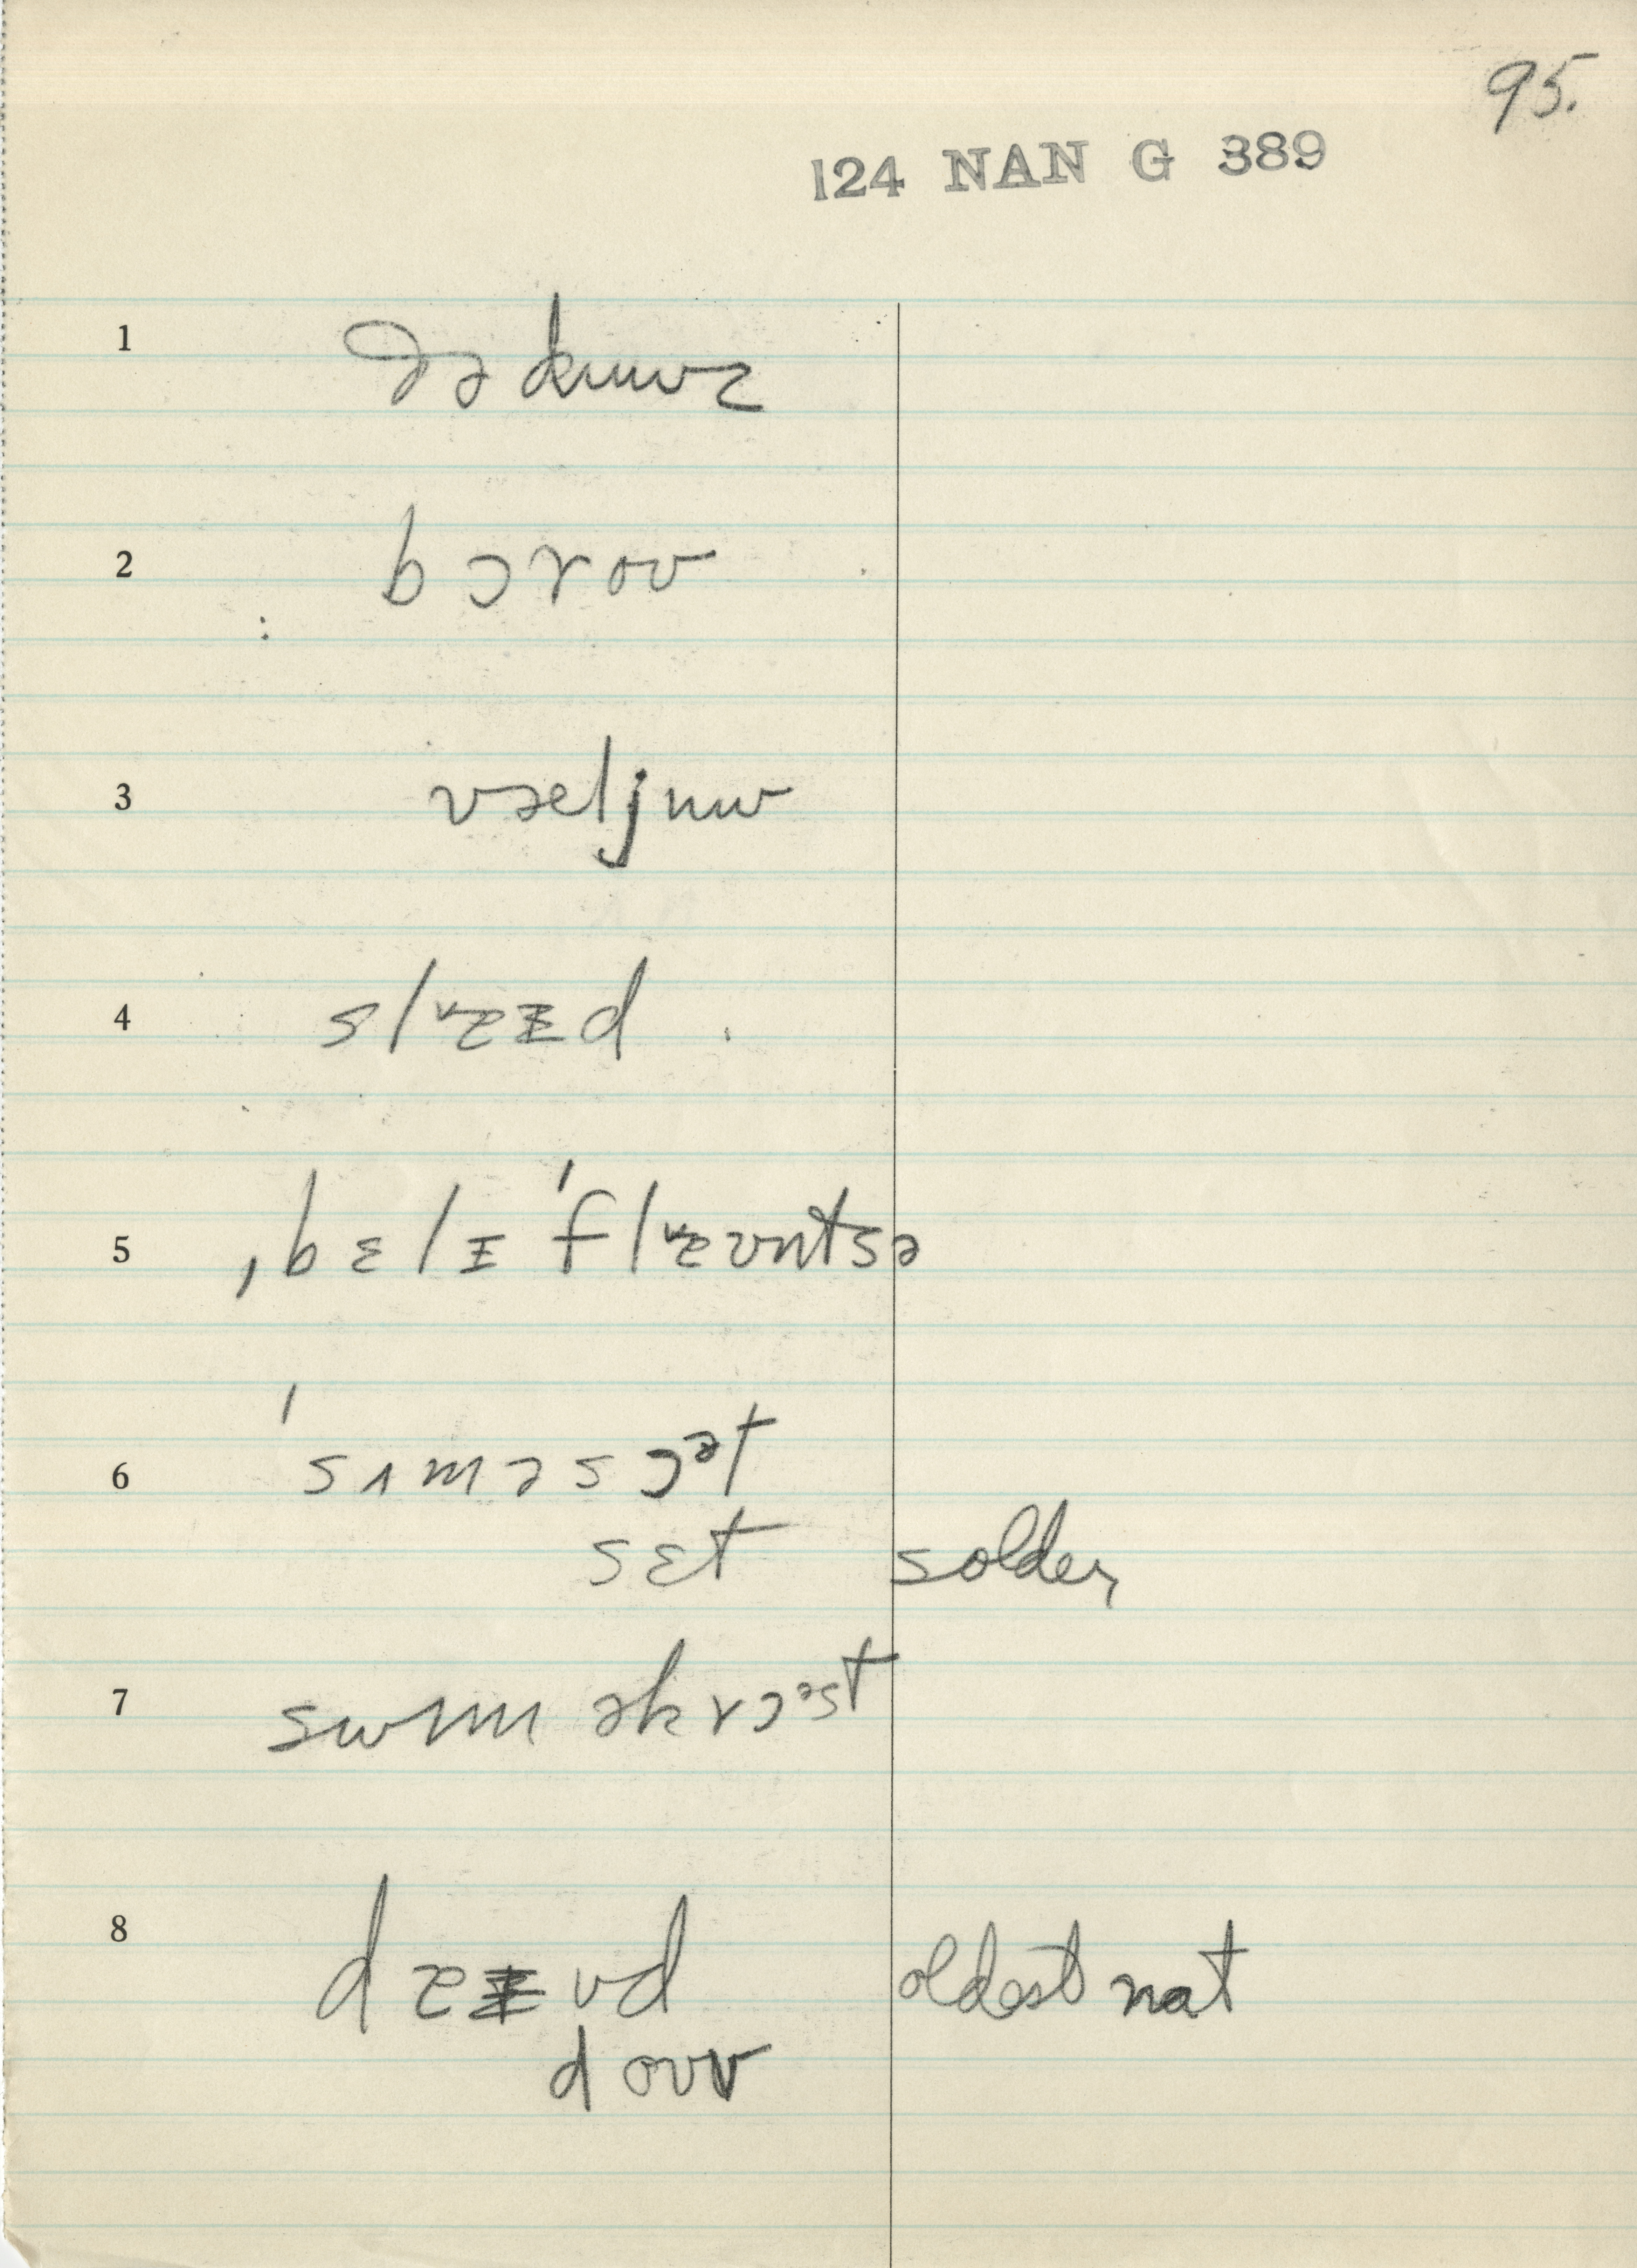 95.
124 NAN G 389
1 ðə kɯʊz
2 bɔroʊ
3 væljuʊ
4 slɐᵻd
5 ˌbɛlᵻˈflɐʊntsə
6 ˈsɪməsɔᵊt
sɛt solder
7 swɪm əkrɔᵊst
8 dɐᵻʊd oldest nat
doʊv